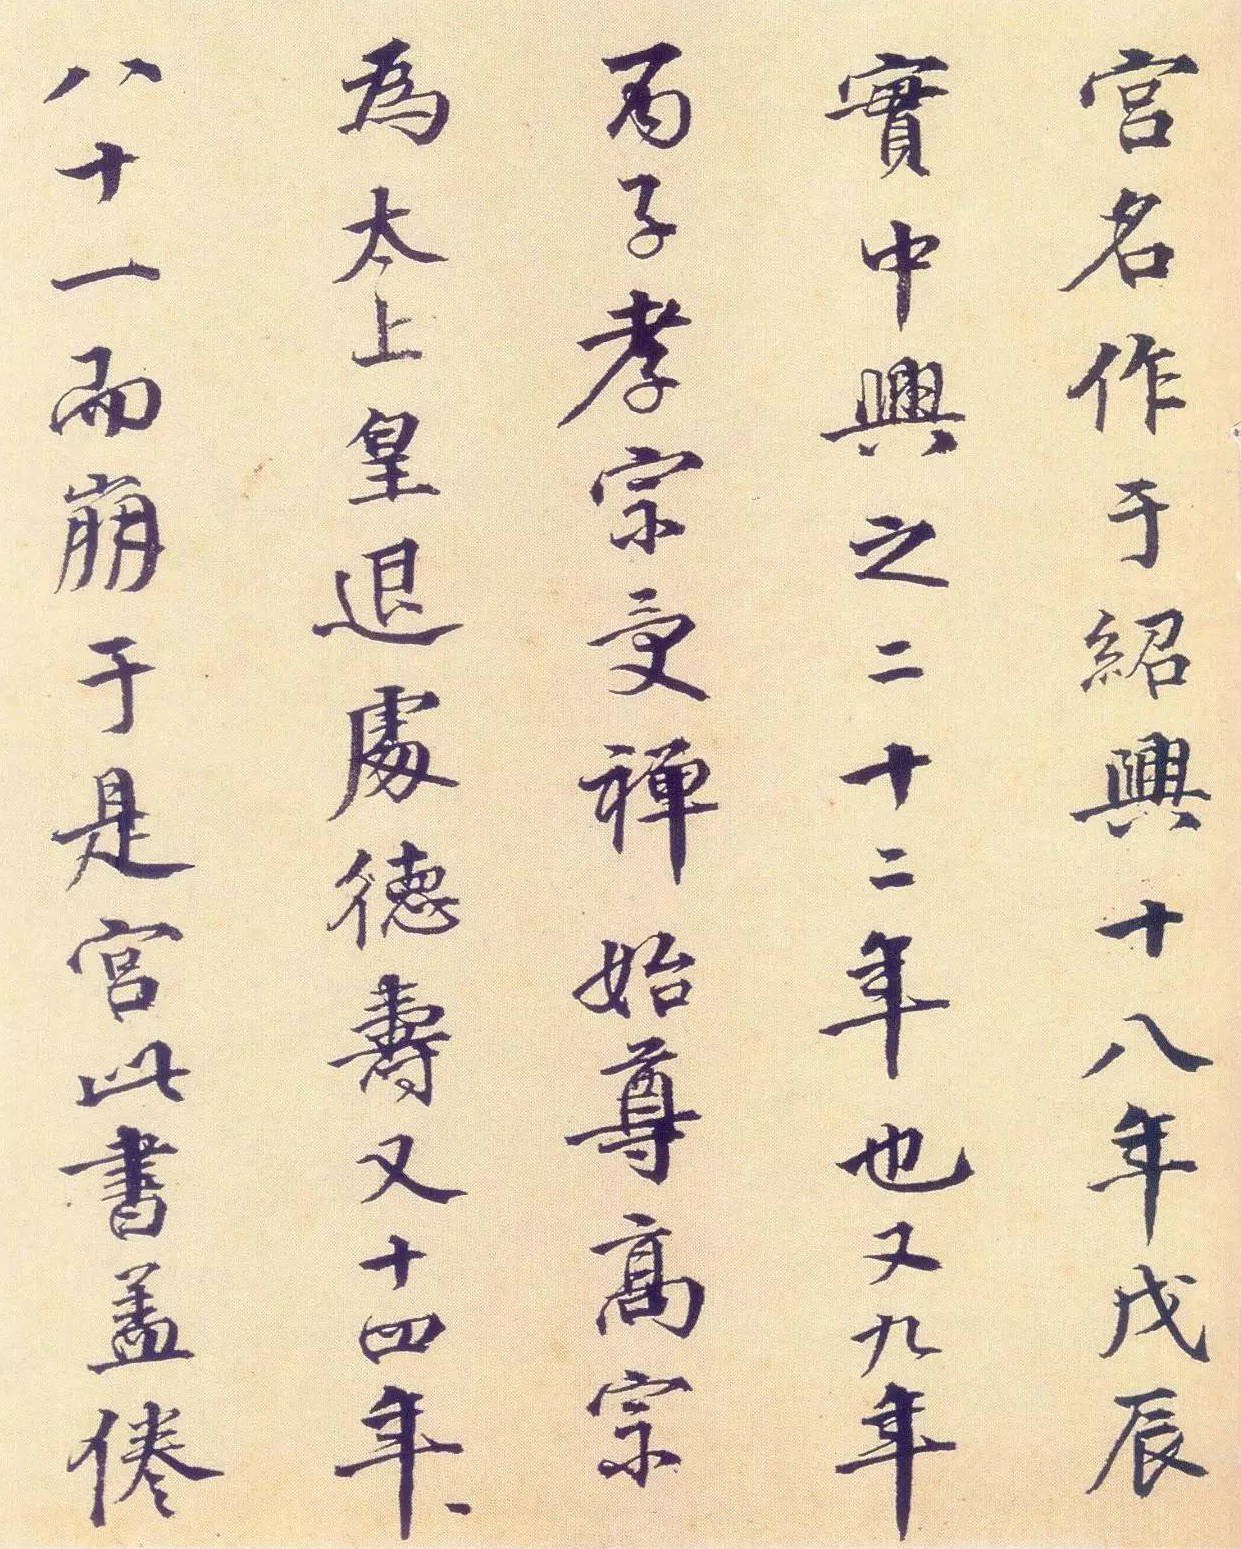 宮名作于紹興十八年戊辰
實中興之二十二年也又九年
丙子孝宗受禪始尊髙宗
為太上皇退處德壽又十四年
八十一而崩于是宮此書盖倦